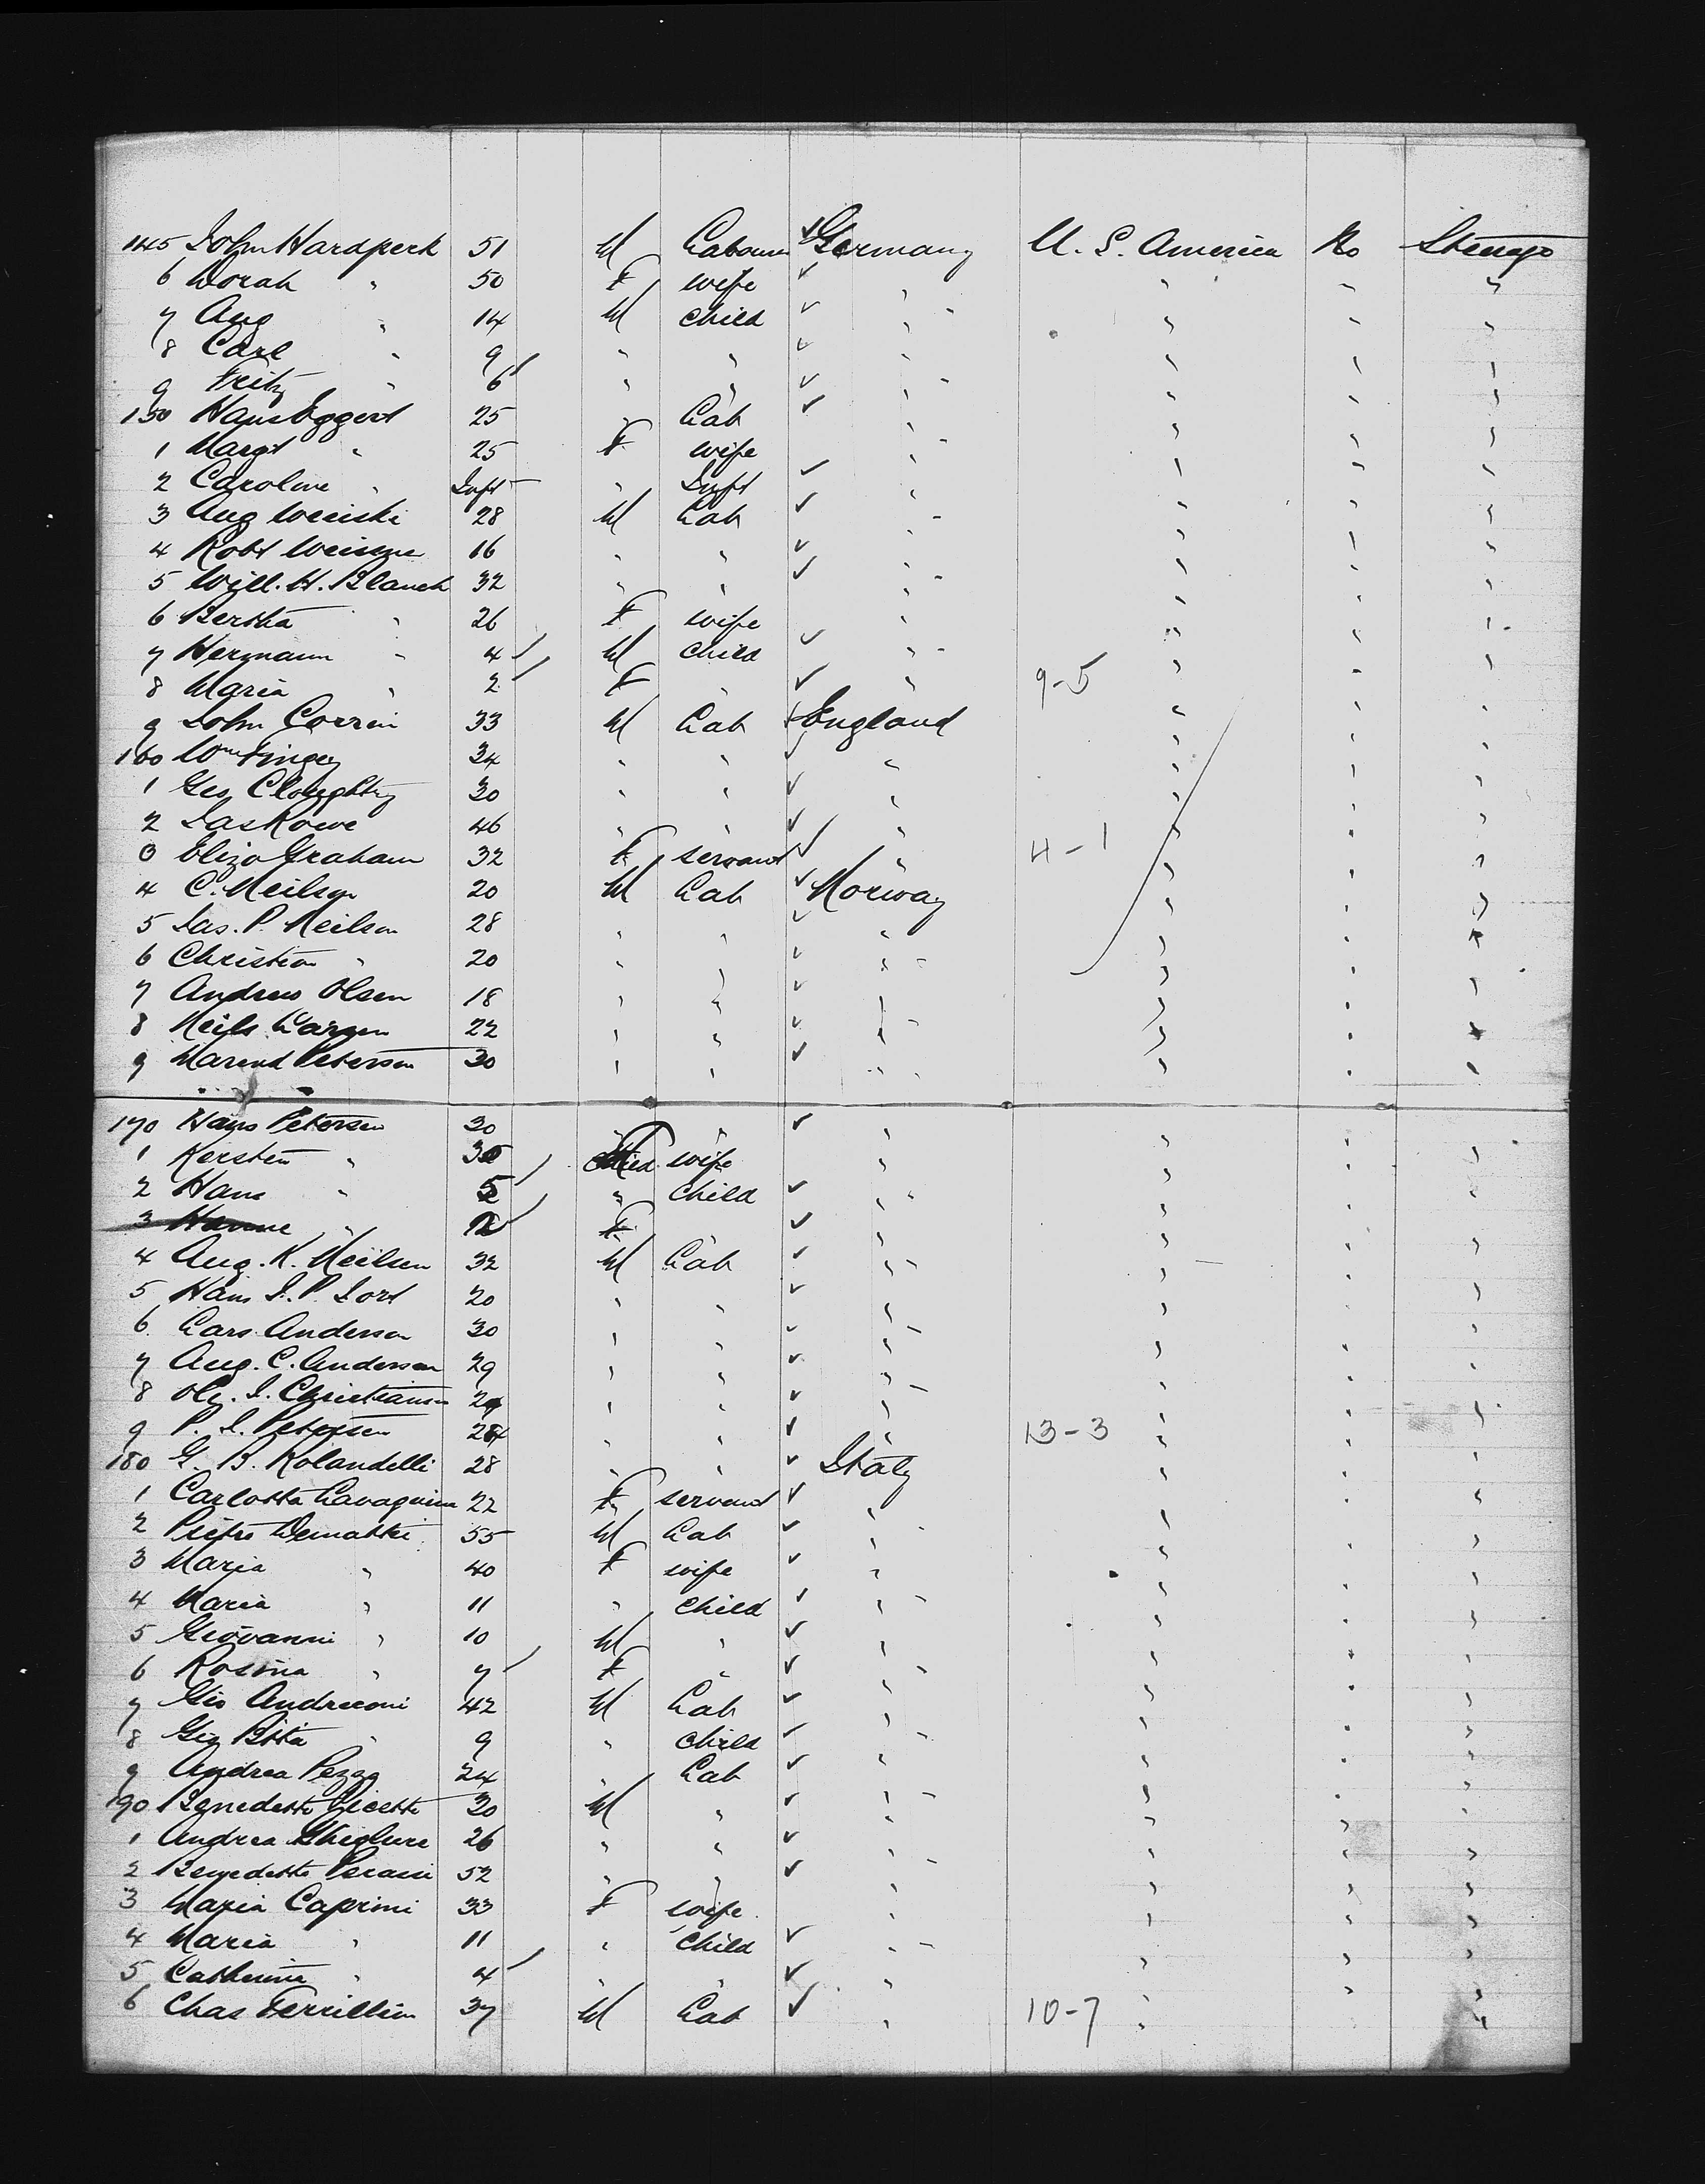 145 John Hardperk 51 M Labourer Germany U. S. America No Steerage
6 Dorah " 50 F wife " " " "
7 Aug " 14 M child " " " "
8 Carl " 9 " " " " " "
9 Fritz " 6 " " " " " "
150 Hans Eggert 25 " Lab " " " "
1 Margt " 25 F wife " " " "
2 Caroline " Inft " Inft " " " "
3 Aug 28 M Lab " " " "
4 Robt 16 " " " " " "
5 Will. H. Blanch 32 " " " " " "
6 Bertha " 26 F wife " " " "
7 Hermann " 4 M child " " " "
8 Maria " 2 F " " 9-5 " " "
9 John Corrin 33 M Lab England " " "
160 Wm Finger 34 " " " " " "
1 Geo Cloughtry 30 " " " " " "
2 Jas Rowe 46 " " " " " "
3 Eliza Graham 32 F servant " 4-1 " " "
4 C. Neilson 20 M Lab Norway " " "
5 Jas. P. Neilson 28 " " " " " "
6 Christian " 20 " " " " " "
7 Andrew Olsen 18 " " " " " "
8 Neils 22 " " " " " "
9 Petersen 30 " " " " " "
170 Hans Petersen 30 " " " " " "
1 Kersten " 30 F wife " " " "
2 Hans " 5 " child " " " "
3 Hanne " 2 F " " " "
4 Aug. K. Neilsen 32 M Lab " " " "
5 Hans J. P. 20 " " " " " "
6 Lars Anderson 30 " " " " " "
7 Aug. C. Andersen 29 " " " " " "
8 Ole. J. Christiansen " " " " " "
9 P. J. Petersen " " " 13-3 " " "
180 G. B. Rolandelli 28 " " Italy " " "
1 Carlotta 22 F servant " " " "
2 Pietro Demattei 55 M Lab " " " "
3 Maria " 40 F wife " " " "
4 Maria " 11 " child " " " "
5 Giovanni " 10 M " " " " "
6 Rosina " 7 F " " " " "
7 Gio Andreconi 42 M Lab " " " "
8 Gio Btta " 9 " child " " " "
9 Andrea Pezzo 24 " Lab " " " "
190 Benedetto 30 M " " " " "
1 Andrea 26 " " " " " "
2 Benedetto 52 " " " " " "
3 Maria Caprini 33 F wife " " " "
4 Maria " 11 " child " " " "
5 Catherine " 4 " " " " " "
6 Chas 37 M Lab " 10-7 " " "